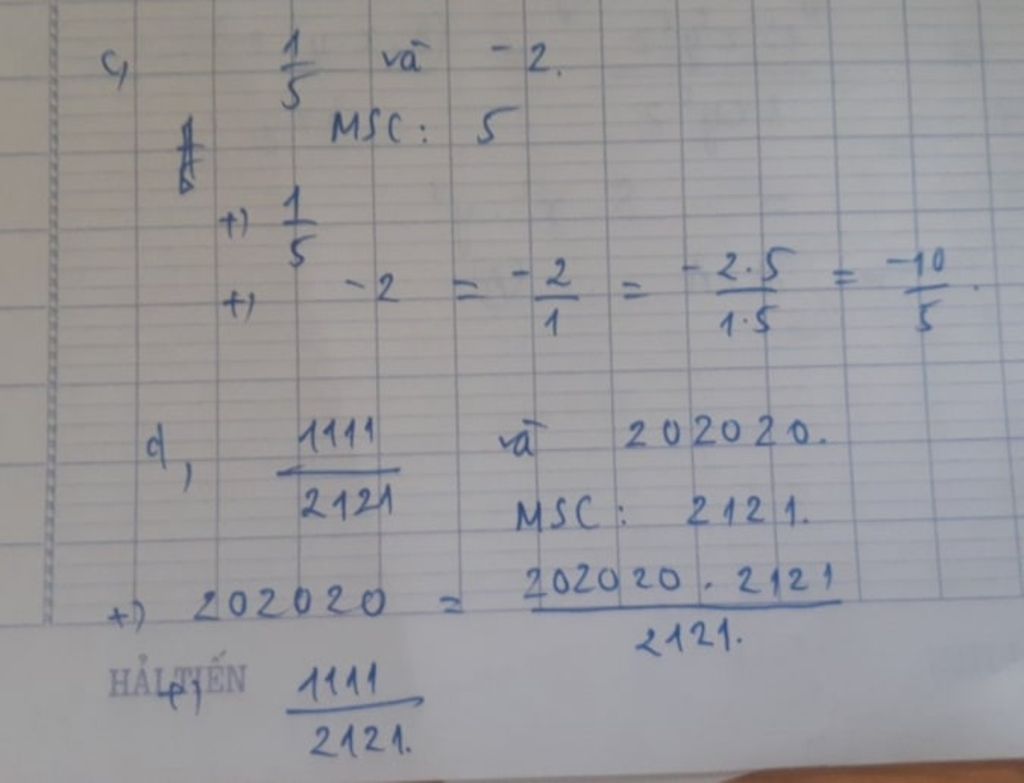 c, 1/5 và -2.
MSC: 5
+) 1/5
+) -2 = -2/1 = -2.5/1.5 = -10/5.
d, 1111/2121 và 202020.
MSC: 2121.
+) 202020 = 202020.2121/2121.
HẢI TIẾN
+) 1111/2121.